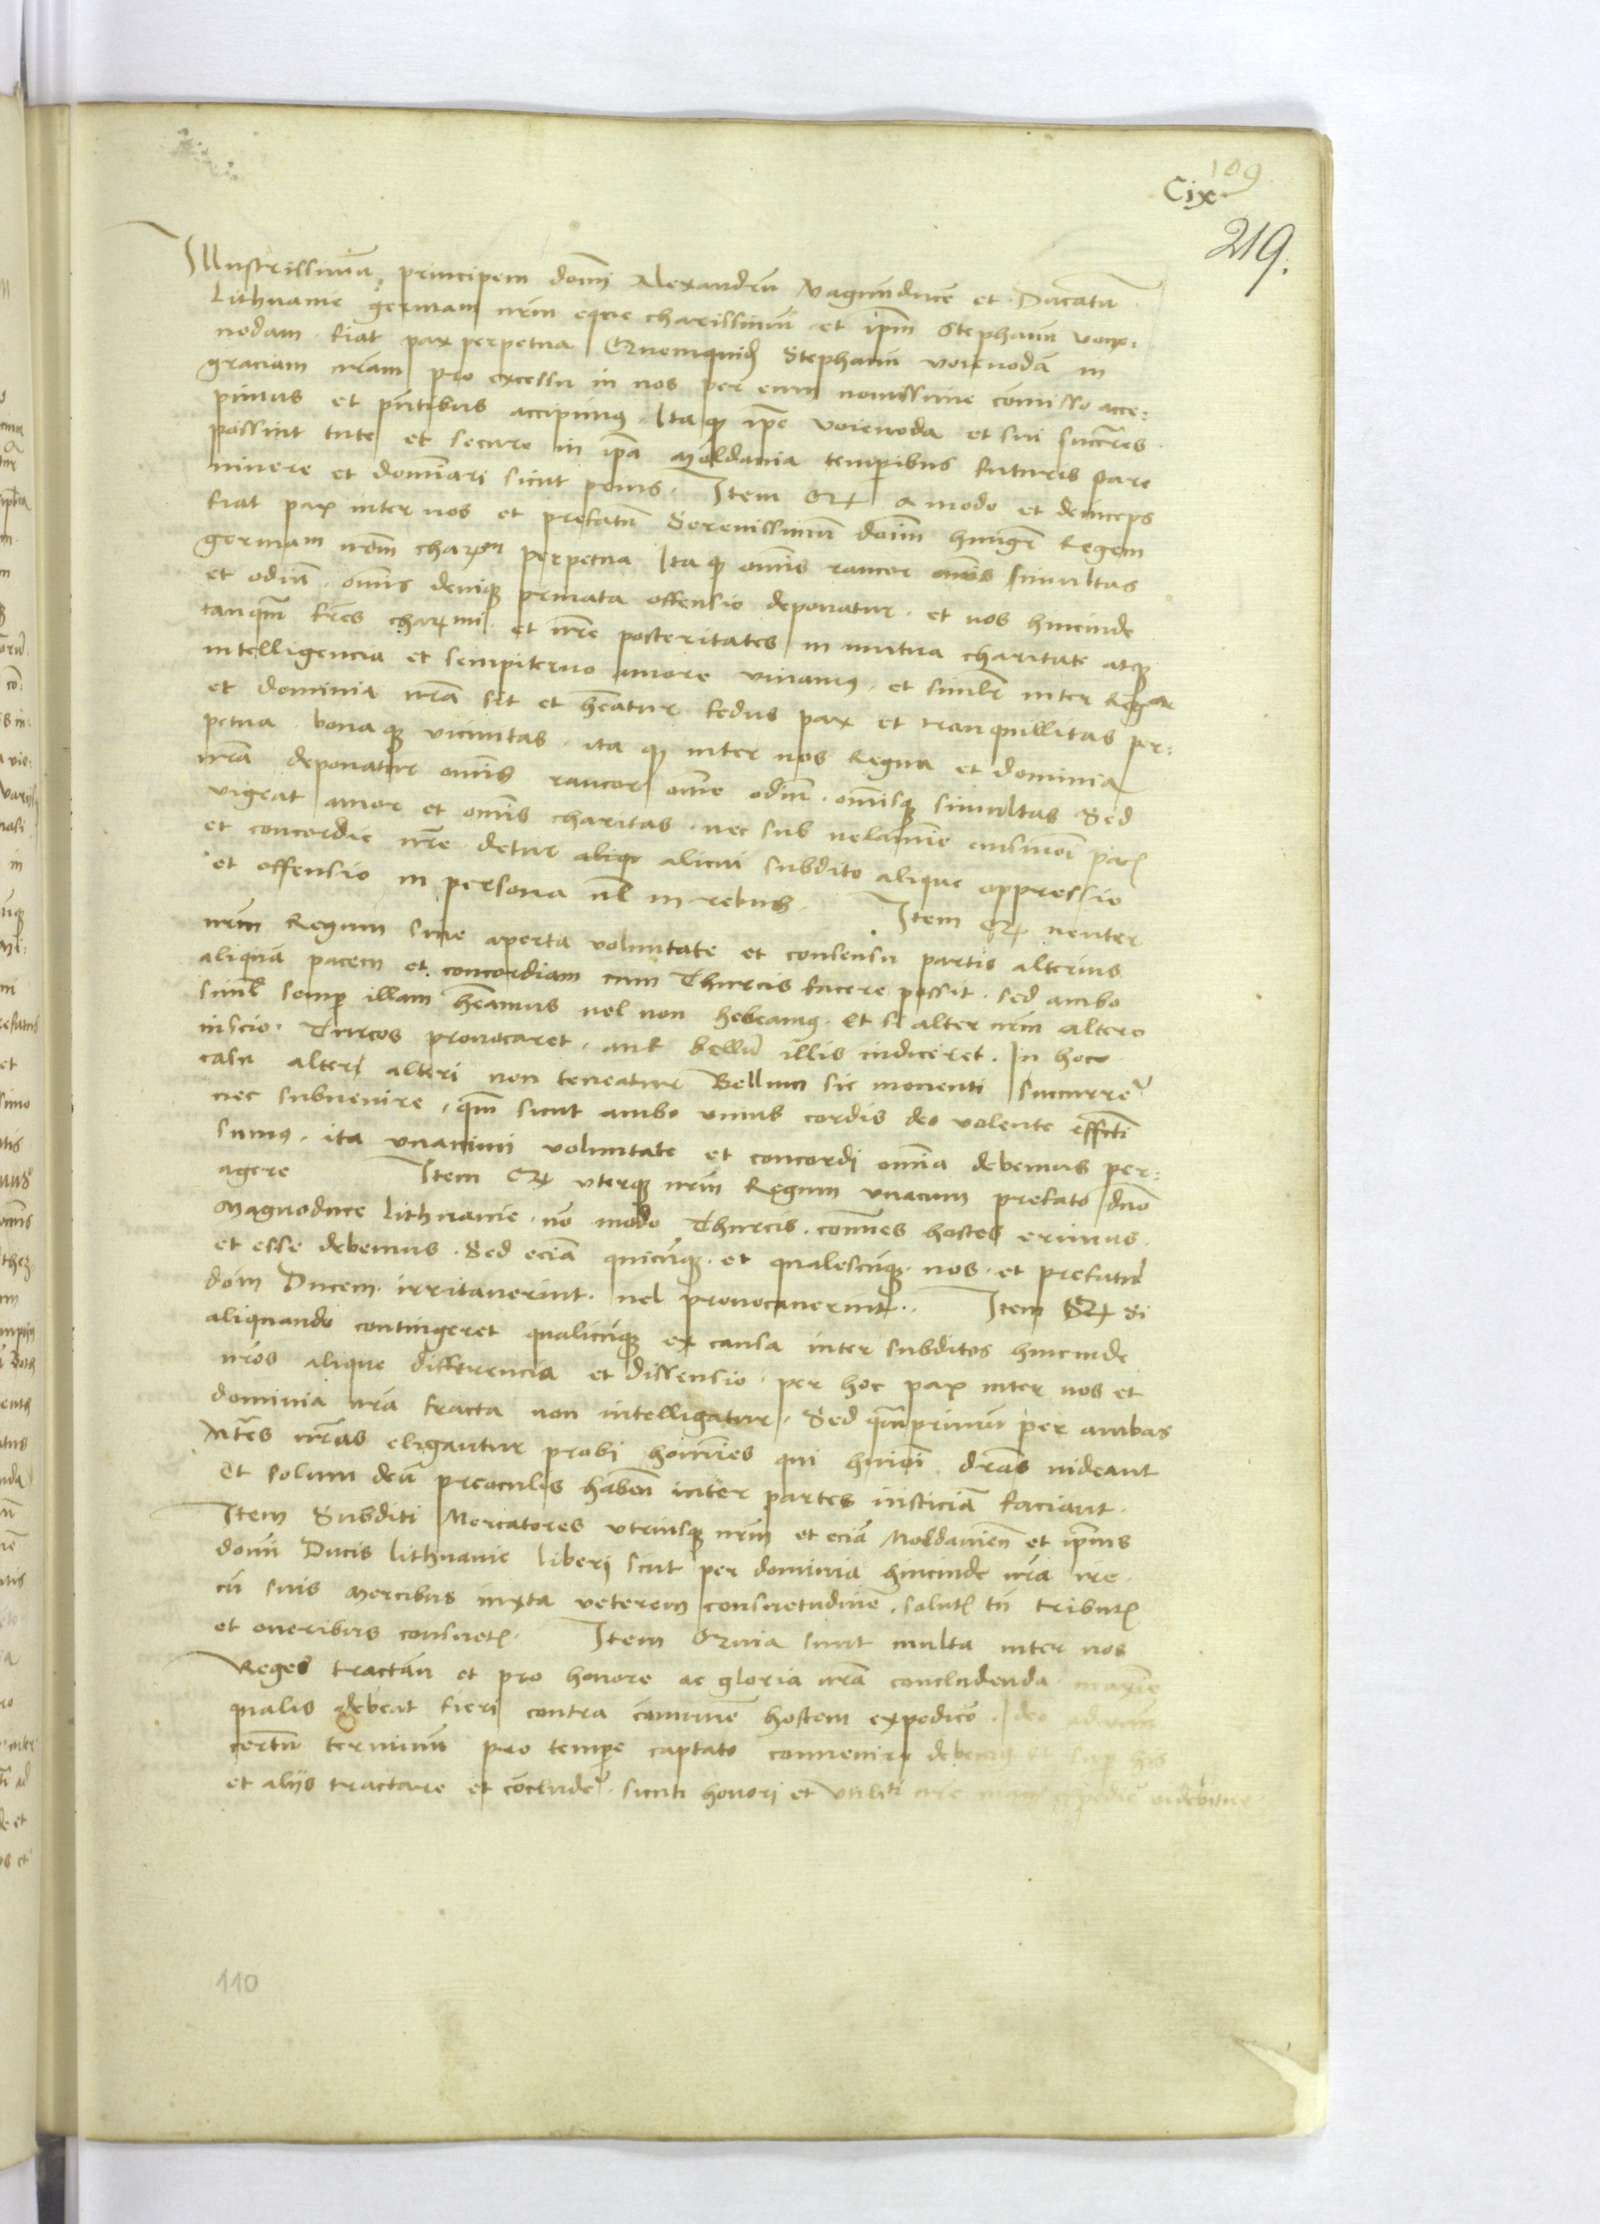 109
Cix
219.
Illustrissimũ principem dom̃ Alexandrũ Magnũducẽ et Ducatũ
Lithuanie germanũ nr̃m eque charissimũ et ip̃m Stephanũ voie-
uodam . fiat pax perpetua Quemquidẽ Stephanũ voieuodã in
graciam nr̃am pro excessu in nos per eum nouissime cõmisso acce:
pimus et pñtibus accipimus . Ita q ip̃e voieuoda et sui succr̃es .
possint tute et secure in ip̃a Moldauia temp̃ibus futuris stare
viuere et domĩari sicut prius . Item Q a modo et deinceps
fiat pax inter nos et prefatũ Serenissimũ doĩm hungr̃ Regem
germanũ nr̃m charm̃ perpetua Ita q om̃is rancor om̃is simultas
et odiũ . om̃is deniq priuata offensio deponatur . et nos hincinde
tanq̃m fr̃es charmi . et nr̃e posteritates in mutua charitate atq
intelligencia et sempiterno amore viuamus . et simil̃r inter Regna
et dominia nr̃a sit et hẽatur fedus pax et tranquillitas per:
petua . bonaq vicinitas . ita q inter nos Regna et dominia
nr̃a deponatur om̃is rancor om̃e odiũ . om̃isq simultas Sed
vigeat amor et om̃is charitas . nec sub velamine eiusmoĩ pac
et concordie nr̃e detur aliqr alicui subdito alique oppressio
et offensio in persona ul̃ in rebus . Item Q neuter
nr̃m Regum sine aperta voluntate et consensu partis alterius
aliquã pacem et concordiam cum Thurcis facere possit . sed ambo
simul semp illam hẽamus vel non hebeamus . Et si alter nr̃m altero
inscio . Turcos prouocaret . aut bellũ illis indiceret . In hoc
casu alter alteri non teneatur Bellum sic mouenti succurre
nec subuenire , q̃m sicut ambo vnius cordis deo volente effecti
sumus . ita vnanimi voluntate et concordi om̃ia debemus per:
agere Item Q vterq nr̃m Regum vnacum prefato dño
Magnoduce Lithuanie . nõ modo Thurcis . com̃unes hostes erimus .
et esse debemus . Sed eciã quicũq . et qualescũq . nos . et prefatũ
doĩm Ducem . irritauerint . vel prouocauerint . Item Q si
aliquando contingeret qualicũq ex causa inter subditos hincinde
nr̃os alique differencia et dissensio . per hoc pax inter nos et
dominia nr̃a fracta non intelligatur . Sed q̃mprimũ per ambas
ptes nr̃as eligantur probi homĩes qui huiõi dr̃as videant
Et solum deũ preoculis habeñ inter partes iusticiã faciant .
Item Subditi Mercatores vtriusq nr̃m et eciã Moldauieñ et ip̃ius
domĩ Ducis Lithuanie liberi sint per dominia hincinde nr̃a ire .
cũ suis mercibus iuxta veterem consuetudinẽ . solut tñ tribut
et oneribus consuet . Item Quia sunt multa inter nos
Reges tractañ et pro honore ac gloria nr̃a concludenda maxĩe
qualis debeat fieri contra cõmunẽ hostem expedicõ . Ideo ad
certũ terminũ pro tempe captato conuenire debemus et sup his
et aliis tractare et cõclude . sicuti honori et vtiliti nr̃e expedire videbitur
110